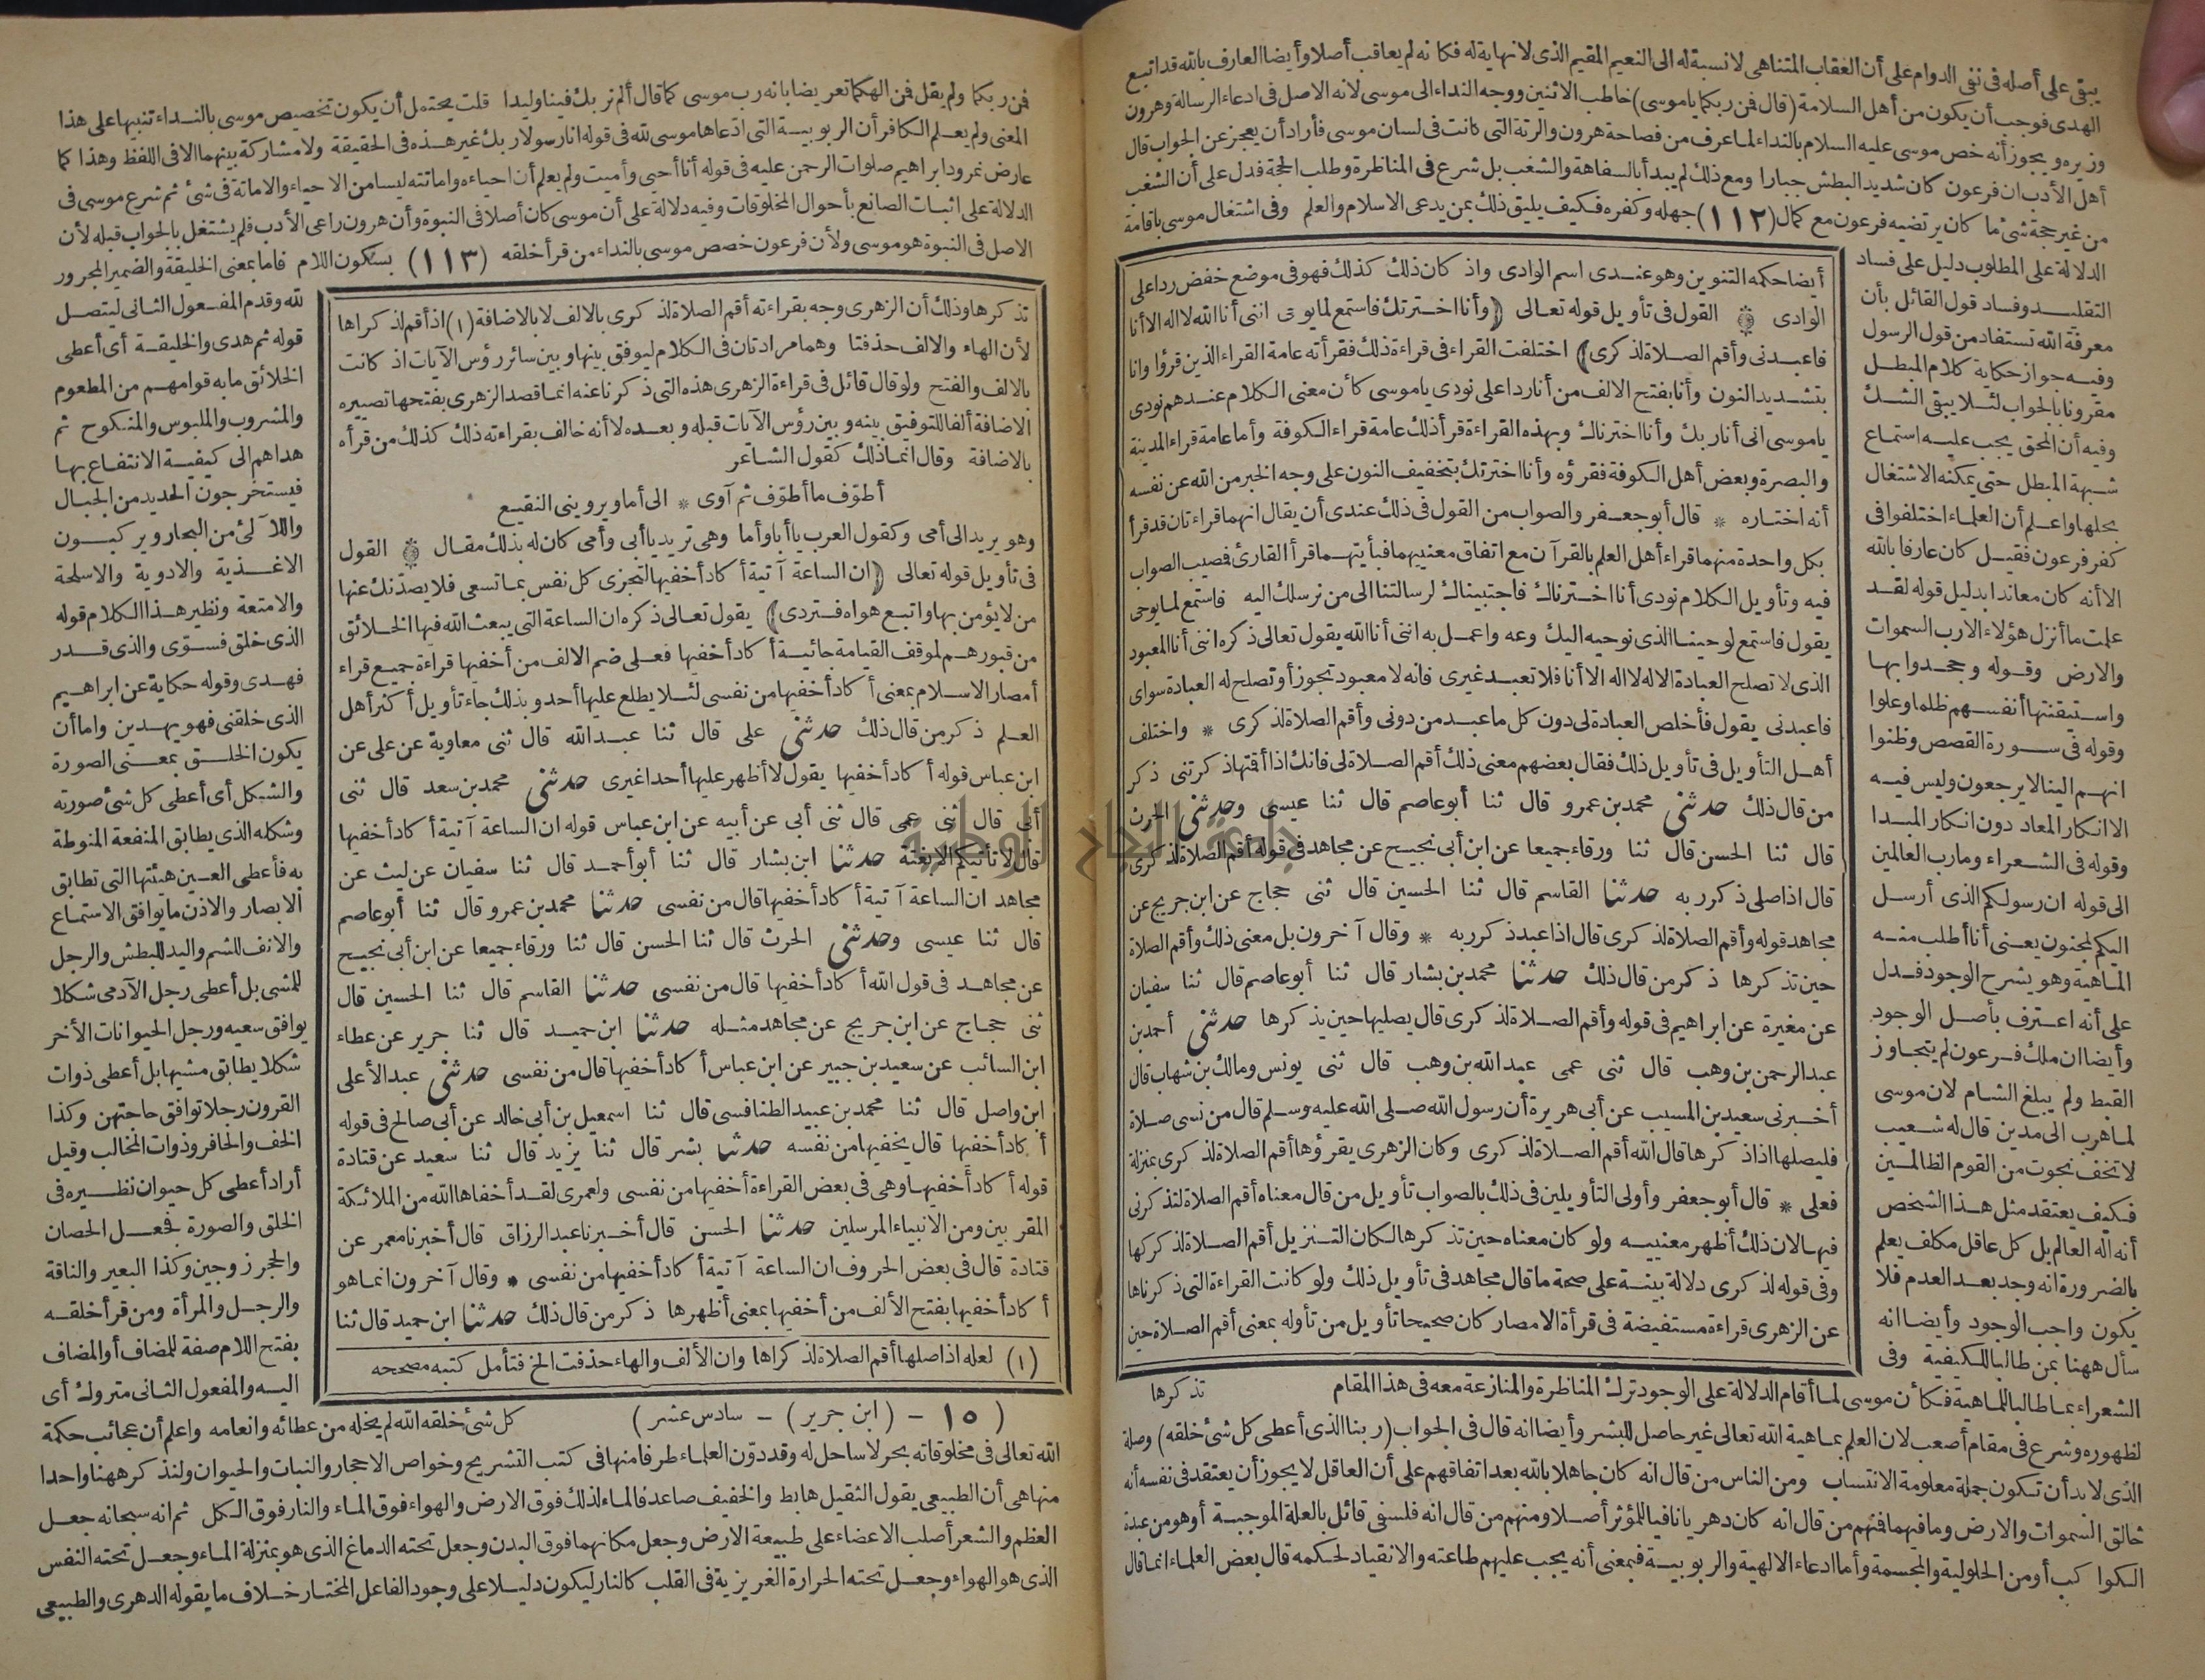 يبقى على أصله فى نفى الدوام على أن العقاب المتناهى لا نسبة له الى النعيم المقيم الذى لا نهاية له فكانه لم يعاقب أصلا وأيضا العارف بالله قد اتبع
الهدى فوجب أن يكون من أهل السلامة (قال فمن ربكما ياموسى) خاطب الاثنين ووجه النداء الى موسى لانه الاصل فى ادعاء الرسالة وهرون
وزيره ويجوز أنه خص موسى عليه السلام بالنداء لما عرف من فصاحة هرون والرتة التى كانت فى لسان موسى فأراد أن يعجز عن الجواب قال
أهل الأدب ان فرعون كان شديد البطش جبارا ومع ذلك لم يبدأ بالسفاهة والشغب بل شرع فى المناظرة وطلب الحجة فدل على أن الشغب
من غير حجة شئ ما كان يرتضيه فرعون مع كمال (١١٢) جهله وكفره فكيف يليق ذلك بمن يدعى الاسلام والعلم وفى اشتغال موسى باقامة
الدلالة على المطلوب دليل على فساد
التقليد وفساد قول القائل بأن
معرفة الله تستفاد من قول الرسول
وفيه جواز حكاية كلام المبطل
مقرونا بالجواب لئلا يبقى الشك
وفيه أن المحق يجب عليه استماع
شبهة المبطل حتى يمكنه الاشتغال
بحلها واعلم أن العلماء اختلفوا فى
كفر فرعون فقيل كان عارفا بالله
الا أنه كان معاندا بدليل قوله لقد
علمت ما أنزل هؤلاء الا رب السموات
والارض وقوله وجحدوا بها
واستيقنتها أنفسهم ظلما وعلوا
وقوله فى سورة القصص وظنوا
انهم الينا لا يرجعون وليس فيه
الا انكار المعاد دون انكار المبدا
وقوله فى الشعراء وما رب العالمين
الى قوله ان رسولكم الذى أرسل
اليكم لمجنون يعنى أنا أطلب منه
الماهية وهو يشرح الوجود فدل
على أنه اعترف بأصل الوجود
وأيضا ان ملك فرعون لم يتجاوز
القبط ولم يبلغ الشام لان موسى
لما هرب الى مدين قال له شعيب
لا تخف نجوت من القوم الظالمين
فكيف يعتقد مثل هذا الشخص
أنه اله العالم بل كل عاقل مكلف يعلم
بالضرورة انه وجد بعد العدم فلا
يكون واجب الوجود وأيضا انه
سأل ههنا بمن طالبا للكيفية وفى
أيضا حكمه التنوين وهو عندى اسم الوادى واذ كان ذلك كذلك فهو فى موضع خفض ردا على
الوادى ۞ القول فى تأويل قوله تعالى (وأنا اخترتك فاستمع لما يوحى اننى أنا الله لا اله الا أنا
فاعبدنى وأقم الصلاة لذكرى) اختلفت القراء فى قراءة ذلك فقرأته عامة القراء الذين قرؤا وانا
بتشديد النون وأنا بفتح الالف من أنا ردا على نودى ياموسى كأن معنى الكلام عندهم نودى
ياموسى انى أنا ربك وأنا اخترناك وبهذه القراءة قرأ ذلك عامة قراء الكوفة وأما عامة قراء المدينة
والبصرة وبعض أهل الكوفة فقرؤه وأنا اخترتك بتخفيف النون على وجه الخبر من الله عن نفسه
أنه اختاره * قال أبو جعفر والصواب من القول فى ذلك عندى أن يقال انهما قراءتان قد قرأ
بكل واحدة منهما قراء أهل العلم بالقرآن مع اتفاق معنييهما فبأيتهما قرأ القارئ فمصيب الصواب
فيه وتأويل الكلام نودى أنا اخترناك فاجتبيناك لرسالتنا الى من نرسلك اليه فاستمع لما يوحى
يقول فاستمع لوحينا الذى نوحيه اليك وعه واعمل به اننى أنا الله يقول تعالى ذكره اننى أنا المعبود
الذى لا تصلح العبادة الا له لا اله الا أنا فلا تعبد غيرى فانه لا معبود تجوز أو تصلح له العبادة سواى
فاعبدنى يقول فأخلص العبادة لى دون كل ما عبد من دونى وأقم الصلاة لذكرى * واختلف
أهل التأويل فى تأويل ذلك فقال بعضهم معنى ذلك أقم الصلاة لى فانك اذا أقمتها ذكرتنى ذكر
من قال ذلك حدثنى محمد بن عمرو قال ثنا أبو عاصم قال ثنا عيسى وحدثنى الحرث
قال ثنا الحسن قال ثنا ورقاء جميعا عن ابن أبى نجيح عن مجاهد فى قوله أقم الصلاة لذكرى
قال اذا صلى ذكر ربه حدثنا القاسم قال ثنا الحسين قال ثنى حجاج عن ابن جريج عن
مجاهد قوله وأقم الصلاة لذكرى قال اذا عبد ذكر ربه * وقال آخرون بل معنى ذلك وأقم الصلاة
حين تذكرها ذكر من قال ذلك حدثنا محمد بن بشار قال ثنا أبو عاصم قال ثنا سفيان
عن مغيرة عن ابراهيم فى قوله وأقم الصلاة لذكرى قال يصليها حين يذكرها حدثنى أحمد بن
عبد الرحمن بن وهب قال ثنى عمى عبد الله بن وهب قال ثنى يونس ومالك بن شهاب قال
أخبرنى سعيد بن المسيب عن أبى هريرة أن رسول الله صلى الله عليه وسلم قال من نسى صلاة
فليصلها اذا ذكرها قال الله أقم الصلاة لذكرى وكان الزهرى يقرؤها أقم الصلاة لذكرى بمنزلة
فعلى * قال أبو جعفر وأولى التأويلين فى ذلك بالصواب تأويل من قال معناه أقم الصلاة لتذكرنى
فيها لان ذلك أظهر معنييه ولو كان معناه حين تذكرها لكان التنزيل أقم الصلاة لذكركها
وفى قوله لذكرى دلالة بينة على صحة ما قال مجاهد فى تأويل ذلك ولو كانت القراءة التى ذكرناها
عن الزهرى قراءة مستفيضة فى قرأة الامصار كان صحيحا تأويل من تأوله بمعنى أقم الصلاة حين
تذكرها
الشعراء بما طالبا للماهية فكأن موسى لما أقام الدلالة على الوجود ترك المناظرة والمنازعة معه فى هذا المقام
لظهوره وشرع فى مقام أصعب لان العلم بماهية الله تعالى غير حاصل للبشر وأيضا انه قال فى الجواب (ربنا الذى أعطى كل شئ خلقه) وصلة
الذى لابد أن تكون جملة معلومة الانتساب ومن الناس من قال انه كان جاهلا بالله بعد اتفاقهم على أن العاقل لا يجوز أن يعتقد فى نفسه أنه
خالق السموات والارض وما فيهما فمنهم من قال انه كان دهريا نافيا للمؤثر أصلا ومنهم من قال انه فلسفى قائل بالعلة الموجبة أو هو من عبدة
الكواكب أو من الحلولية والمجسمة وأما ادعاء الالهية والربوبية فبمعنى أنه يجب عليهم طاعته والانقياد لحكمه قال بعض العلماء انما قال
فمن ربكما ولم يقل فمن الهكما تعريضا بانه رب موسى كما قال ألم نربك فينا وليدا قلت يحتمل أن يكون تخصيص موسى بالنداء تنبيها على هذا
المعنى ولم يعلم الكافر أن الربوبية التى ادعاها موسى لله فى قوله انا رسولا ربك غير هذه فى الحقيقة ولا مشاركة بينهما الا فى اللفظ وهذا كما
عارض نمرود ابراهيم صلوات الرحمن عليه فى قوله أنا أحيى وأميت ولم يعلم أن احياءه واماتته ليسا من الاحياء والاماتة فى شئ ثم شرع موسى فى
الدلالة على اثبات الصانع بأحوال المخلوقات وفيه دلالة على أن موسى كان أصلا فى النبوة وأن هرون راعى الأدب فلم يشتغل بالجواب قبله لأن
الاصل فى النبوة هو موسى ولأن فرعون خصص موسى بالنداء من قرأ خلقه (١١٣) بسكون اللام فاما بمعنى الخليقة والضمير المجرور
تذكرها وذلك أن الزهرى وجه بقراءته أقم الصلاة لذكرى بالالف لا بالاضافة (١) اذ أقم لذكراها
لأن الهاء والالف حذفتا وهما مرادتان فى الكلام ليوفق بينها وبين سائر رؤس الآيات اذ كانت
بالالف والفتح ولو قال قائل فى قراءة الزهرى هذه التى ذكرنا عنه انما قصد الزهرى بفتحها تصييره
الاضافة ألفا للتوفيق بينه وبين رؤس الآيات قبله وبعده لا أنه خالف بقراءته ذلك كذلك من قرأه
بالاضافة وقال انما ذلك كقول الشاعر
أطوّف ما أطوّف ثم آوى * الى أما ويروينى النقيع
وهو يريد الى أمى وكقول العرب يا أبا وأما وهى تريد يا أبى وأمى كان له بذلك مقال ۞ القول
فى تأويل قوله تعالى (ان الساعة آتية أكاد أخفيها لتجزى كل نفس بما تسعى فلا يصدّنك عنها
من لا يؤمن بها واتبع هواه فتردى) يقول تعالى ذكره ان الساعة التى يبعث الله فيها الخلائق
من قبورهم لموقف القيامة جائية أكاد أخفيها فعلى ضم الالف من أخفيها قراءة جميع قراء
أمصار الاسلام بمعنى أكاد أخفيها من نفسى لئلا يطلع عليها أحد وبذلك جاء تأويل أكثر أهل
العلم ذكر من قال ذلك حدثنى على قال ثنا عبد الله قال ثنى معاوية عن على عن
ابن عباس قوله أكاد أخفيها يقول لا أظهر عليها أحدا غيرى حدثنى محمد بن سعد قال ثنى
أبى قال ثنى عمى قال ثنى أبى عن أبيه عن ابن عباس قوله ان الساعة آتية أكاد أخفيها
قال لا تأتيكم الا بغتة حدثنا ابن بشار قال ثنا أبو أحمد قال ثنا سفيان عن ليث عن
مجاهد ان الساعة آتية أكاد أخفيها قال من نفسى حدثنا محمد بن عمرو قال ثنا أبو عاصم
قال ثنا عيسى وحدثنى الحرث قال ثنا الحسن قال ثنا ورقاء جميعا عن ابن أبى نجيح
عن مجاهد فى قول الله أكاد أخفيها قال من نفسى حدثنا القاسم قال ثنا الحسين قال
ثنى حجاج عن ابن جريج عن مجاهد مثله حدثنا ابن حميد قال ثنا جرير عن عطاء
ابن السائب عن سعيد بن جبير عن ابن عباس أكاد أخفيها قال من نفسى حدثنى عبد الأعلى
ابن واصل قال ثنا محمد بن عبيد الطنافسى قال ثنا اسمعيل بن أبى خالد عن أبى صالح فى قوله
أكاد أخفيها قال يخفيها من نفسه حدثنا بشر قال ثنا يزيد قال ثنا سعيد عن قتادة
قوله أكاد أخفيها وهى فى بعض القراءة أخفيها من نفسى ولعمرى لقد أخفاها الله من الملائكة
المقربين ومن الانبياء المرسلين حدثنا الحسن قال أخبرنا عبد الرزاق قال أخبرنا معمر عن
قتادة قال فى بعض الحروف ان الساعة آتية أكاد أخفيها من نفسى * وقال آخرون انما هو
أكاد أخفيها بفتح الألف من أخفيها بمعنى أظهرها ذكر من قال ذلك حدثنا ابن حميد قال ثنا
(١) لعله اذ اصلها أقم الصلاة لذكراها وان الألف والهاء حذفت الخ فتأمل كتبه مصححه
لله وقدم المفعول الثانى ليتصل
قوله ثم هدى والخليقة أى أعطى
الخلائق ما به قوامهم من المطعوم
والمشروب والملبوس والمنكوح ثم
هداهم الى كيفية الانتفاع بها
فيستخرجون الحديد من الجبال
واللآلئ من البحار ويركبون
الاغذية والادوية والاسلحة
والامتعة ونظير هذا الكلام قوله
الذى خلق فسوّى والذى قدر
فهدى وقوله حكاية عن ابراهيم
الذى خلقنى فهو يهدين واما أن
يكون الخلق بمعنى الصورة
والشكل أى أعطى كل شئ صورته
وشكله الذى يطابق المنفعة المنوطة
به فأعطى العين هيئتها التى تطابق
الابصار والاذن ما يوافق الاستماع
والانف للشم واليد للبطش والرجل
للمشى بل أعطى رجل الآدمى شكلا
يوافق سعيه ورجل الحيوانات الأخر
شكلا يطابق مشيها بل أعطى ذوات
القرون رجلا توافق حاجتهن وكذا
الخف والحافر وذوات المخالب وقيل
أراد أعطى كل حيوان نظيره فى
الخلق والصورة فجعل الحصان
والحجر زوجين وكذا البعير والناقة
والرجل والمرأة ومن قرأ خلقه
بفتح اللام صفة للمضاف أو المضاف
اليه والمفعول الثانى متروك أى
(١٥ - (ابن جرير) - سادس عشر)
كل شئ خلقه الله لم يخله من عطائه وانعامه واعلم أن عجائب حكمة
الله تعالى فى مخلوقاته بحر لا ساحل له وقد دوّن العلماء طرفا منها فى كتب التشريح وخواص الاحجار والنبات والحيوان ولنذكر ههنا واحدا
منها هى أن الطبيعى يقول الثقيل هابط والخفيف صاعد فالماء لذلك فوق الارض والهواء فوق الماء والنار فوق الكل ثم انه سبحانه جعل
العظم والشعر أصلب الاعضاء على طبيعة الارض وجعل مكانهما فوق البدن وجعل تحته الدماغ الذى هو بمنزلة الماء وجعل تحته النفس
الذى هو الهواء وجعل تحته الحرارة الغريزية فى القلب كالنار ليكون دليلا على وجود الفاعل المختار خلاف ما يقوله الدهرى والطبيعى
جامعة النجاح الوطنية